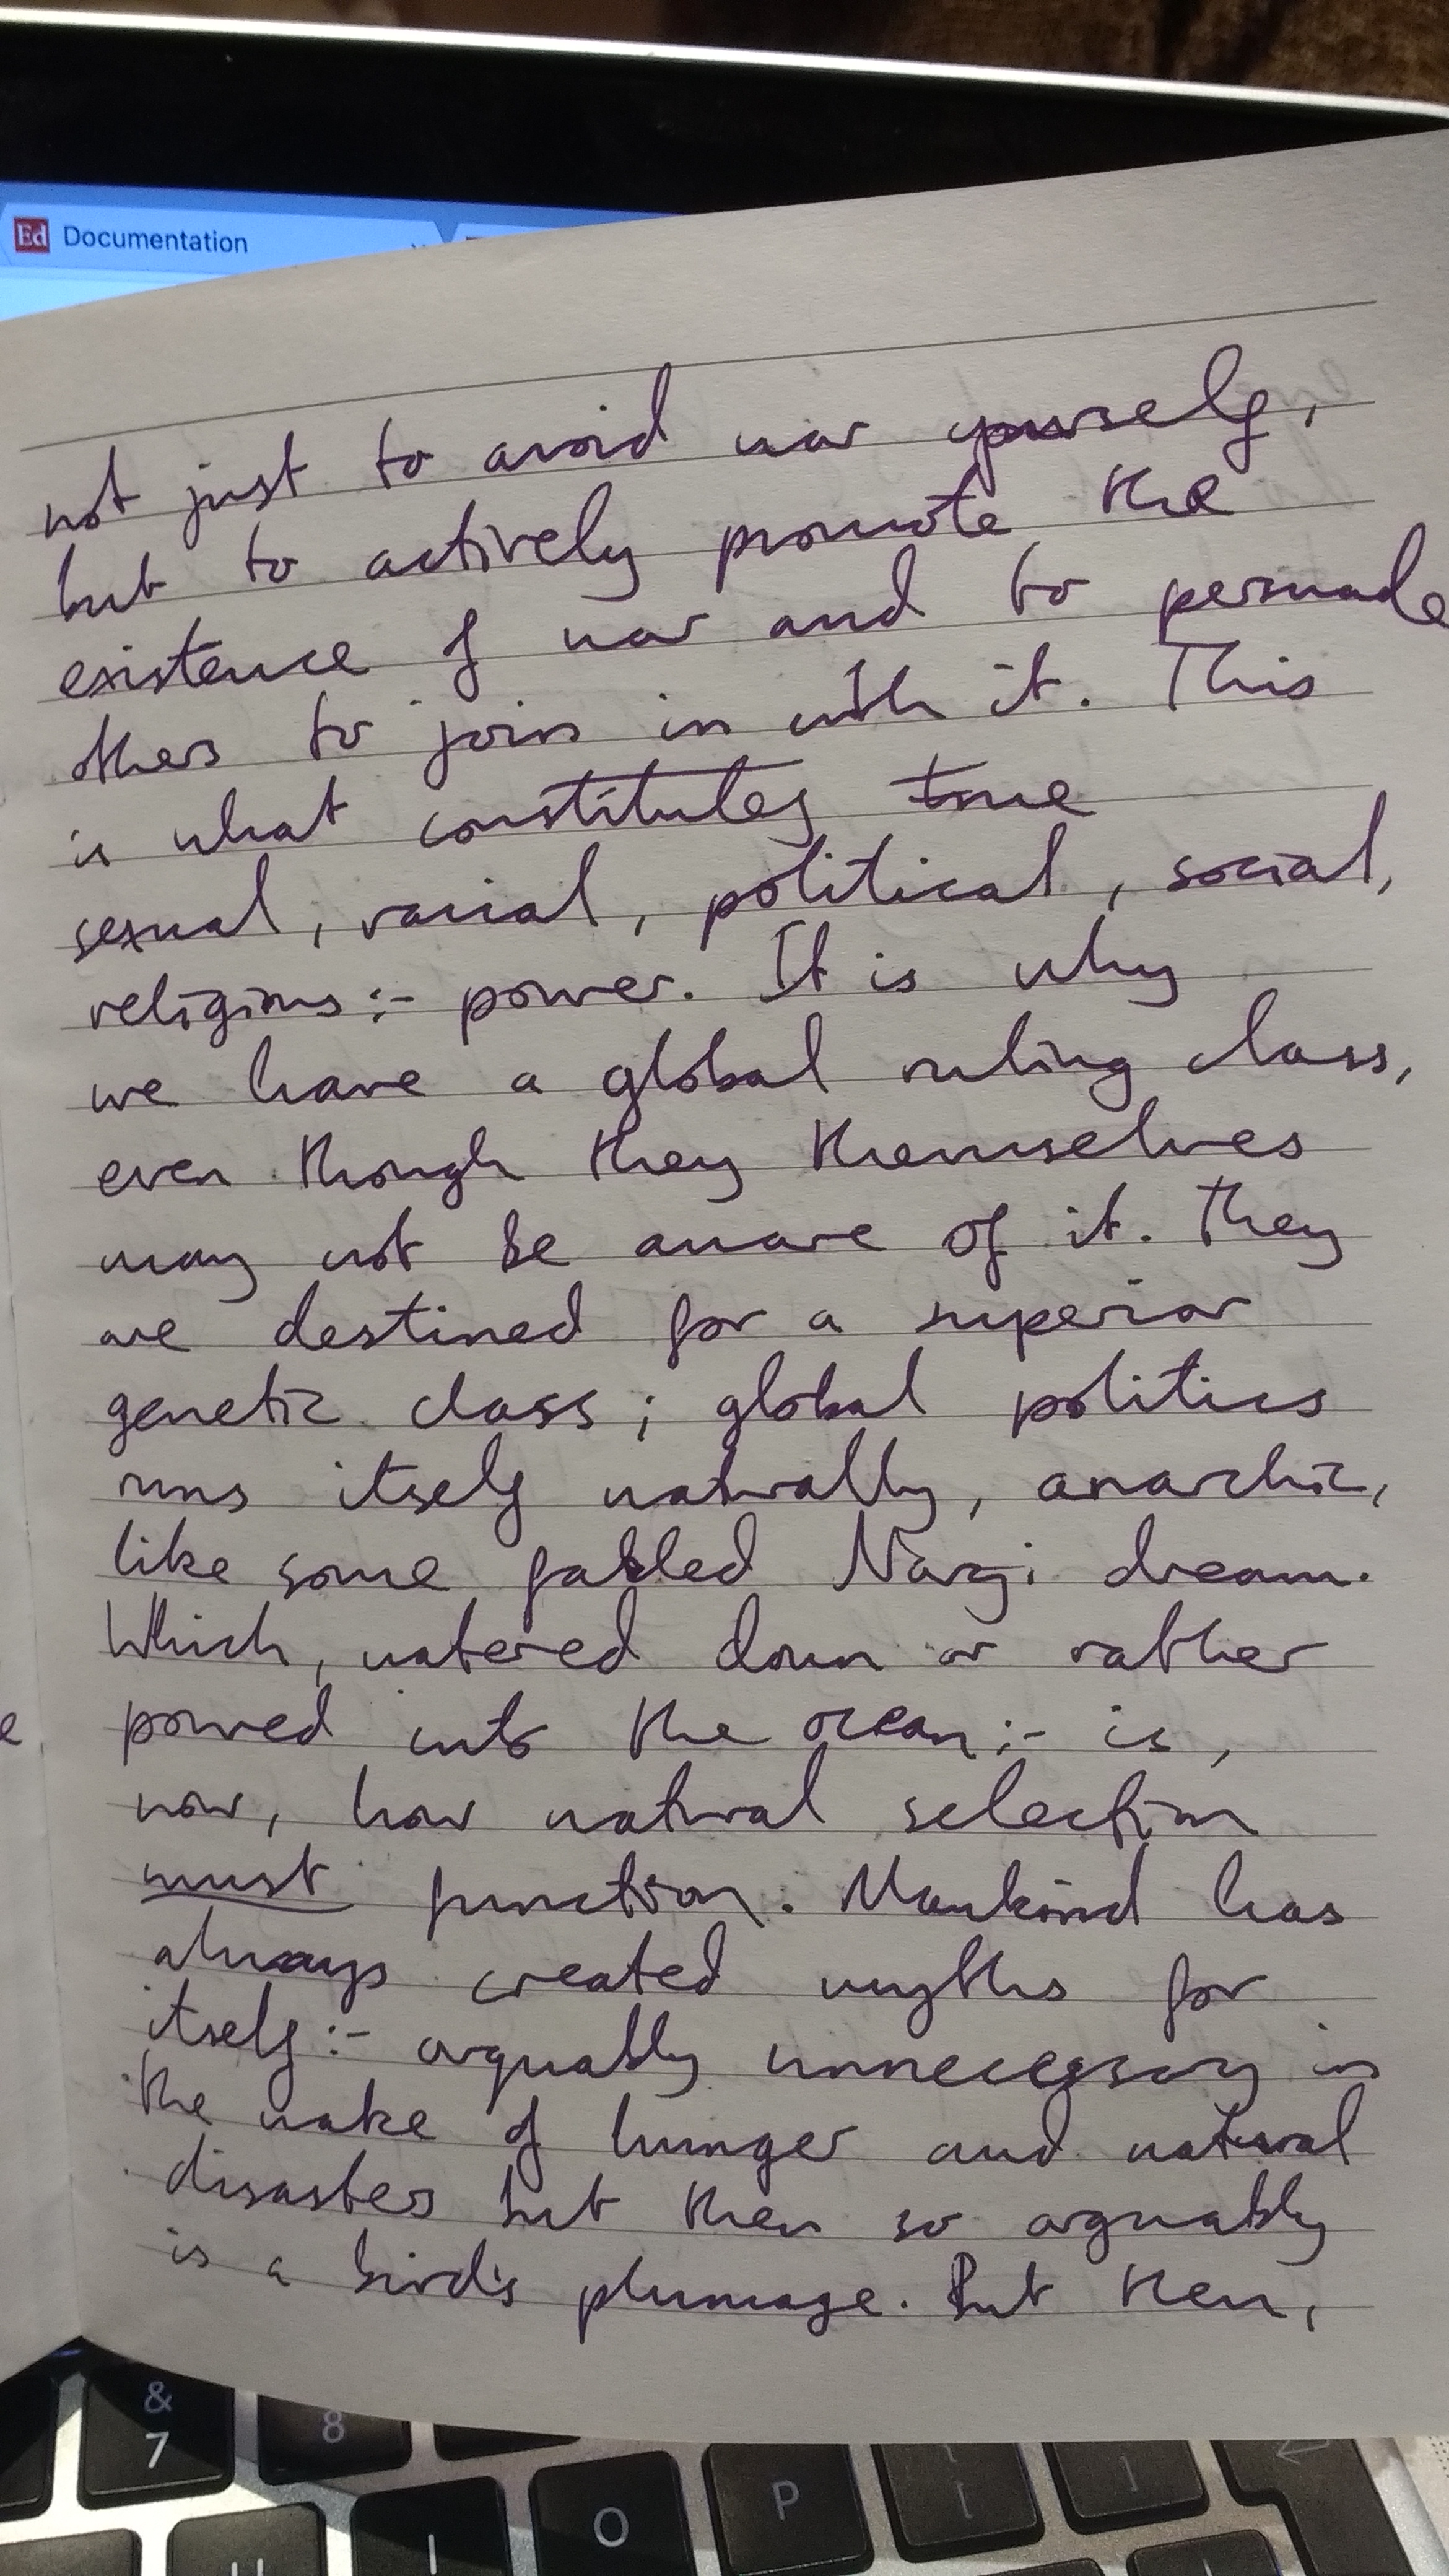 Ed Documentation
not just to avoid war yourself,
but to actively promote the
existence of war and to persuade
others to join in with it. This
is what constitutes true
sexual, racial, political, social,
religious :- power. It is why
we have a global ruling class,
even though they themselves
may not be aware of it. They
are destined for a superior
genetic class; global politics
runs itself naturally, anarchic,
like some fabled Nazi dream.
Which, watered down or rather
poured into the ocean :- is,
now, how natural selection
must function. Mankind has
always created myths for
itself :- arguably unnecessary in
the wake of hunger and natural
disasters but then so arguably
is a bird's plumage. But then,
e
& 7
8
O
P
[
]